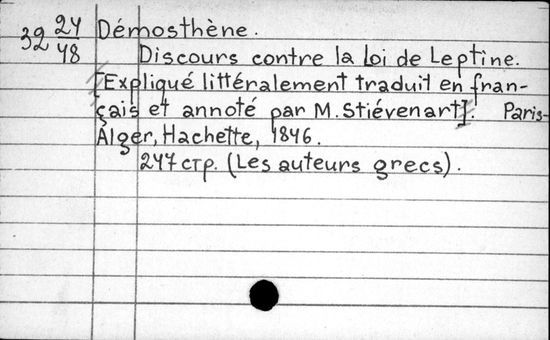 32 24/48 Démosthène.
Discours contre la loi de Leptine.
[Expliqué littéralement traduit en fran-
çais et annoté par M. Stiévenart]. Paris-
Alger, Hachette, 1846.
247 стр. (Les auteurs grecs).